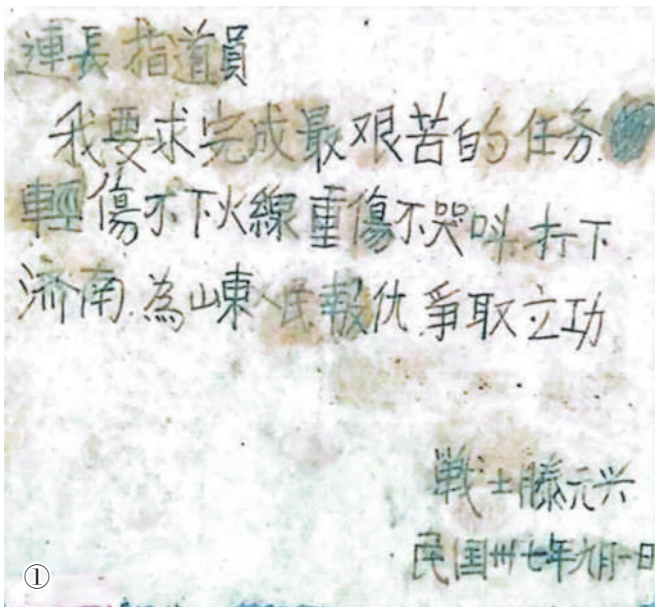 連長指道員
我要求完成最艰苦的任务
輕傷不下火線重傷不哭呌打下
济南.為山東人民報仇.爭取立功
戰士滕元兴
民国卅七年九月一日
①